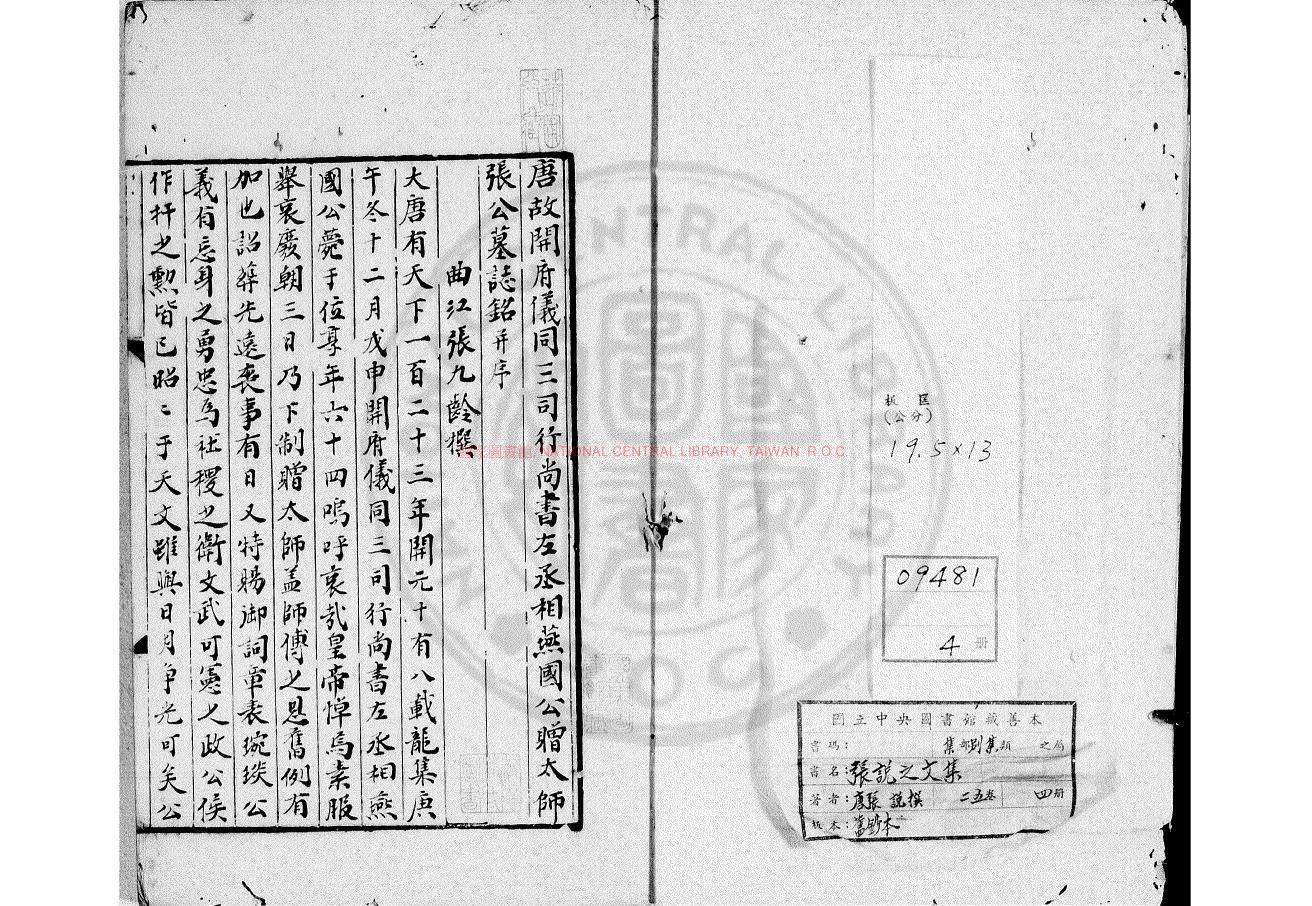 板匡
(公分)
19.5×13
09481
4 册
國立中央圖書館藏善本
書碼： 集部別集類 之屬
書名：張說之文集
著者：唐張說撰 二五卷 四册
板本：舊鈔本
唐故開府儀同三司行尚書左丞相燕國公贈太師
張公墓誌銘并序
曲江張九齡撰
大唐有天下一百二十三年開元十有八載龍集庚
午冬十二月戊申開府儀同三司行尚書左丞相燕
國公薨于位享年六十四嗚呼哀哉皇帝悼焉素服
舉哀廢朝三日乃下制贈太師盖師傅之恩舊例有
加也詔葬先遠喪事有日又特賜御詞章表琬琰公
義有忘身之勇忠為社稷之衛文武可憲之政公侯
作扞之勲皆已昭〻于天文雖與日月争光可矣公
國家圖書館 NATIONAL CENTRAL LIBRARY, TAIWAN, R.O.C